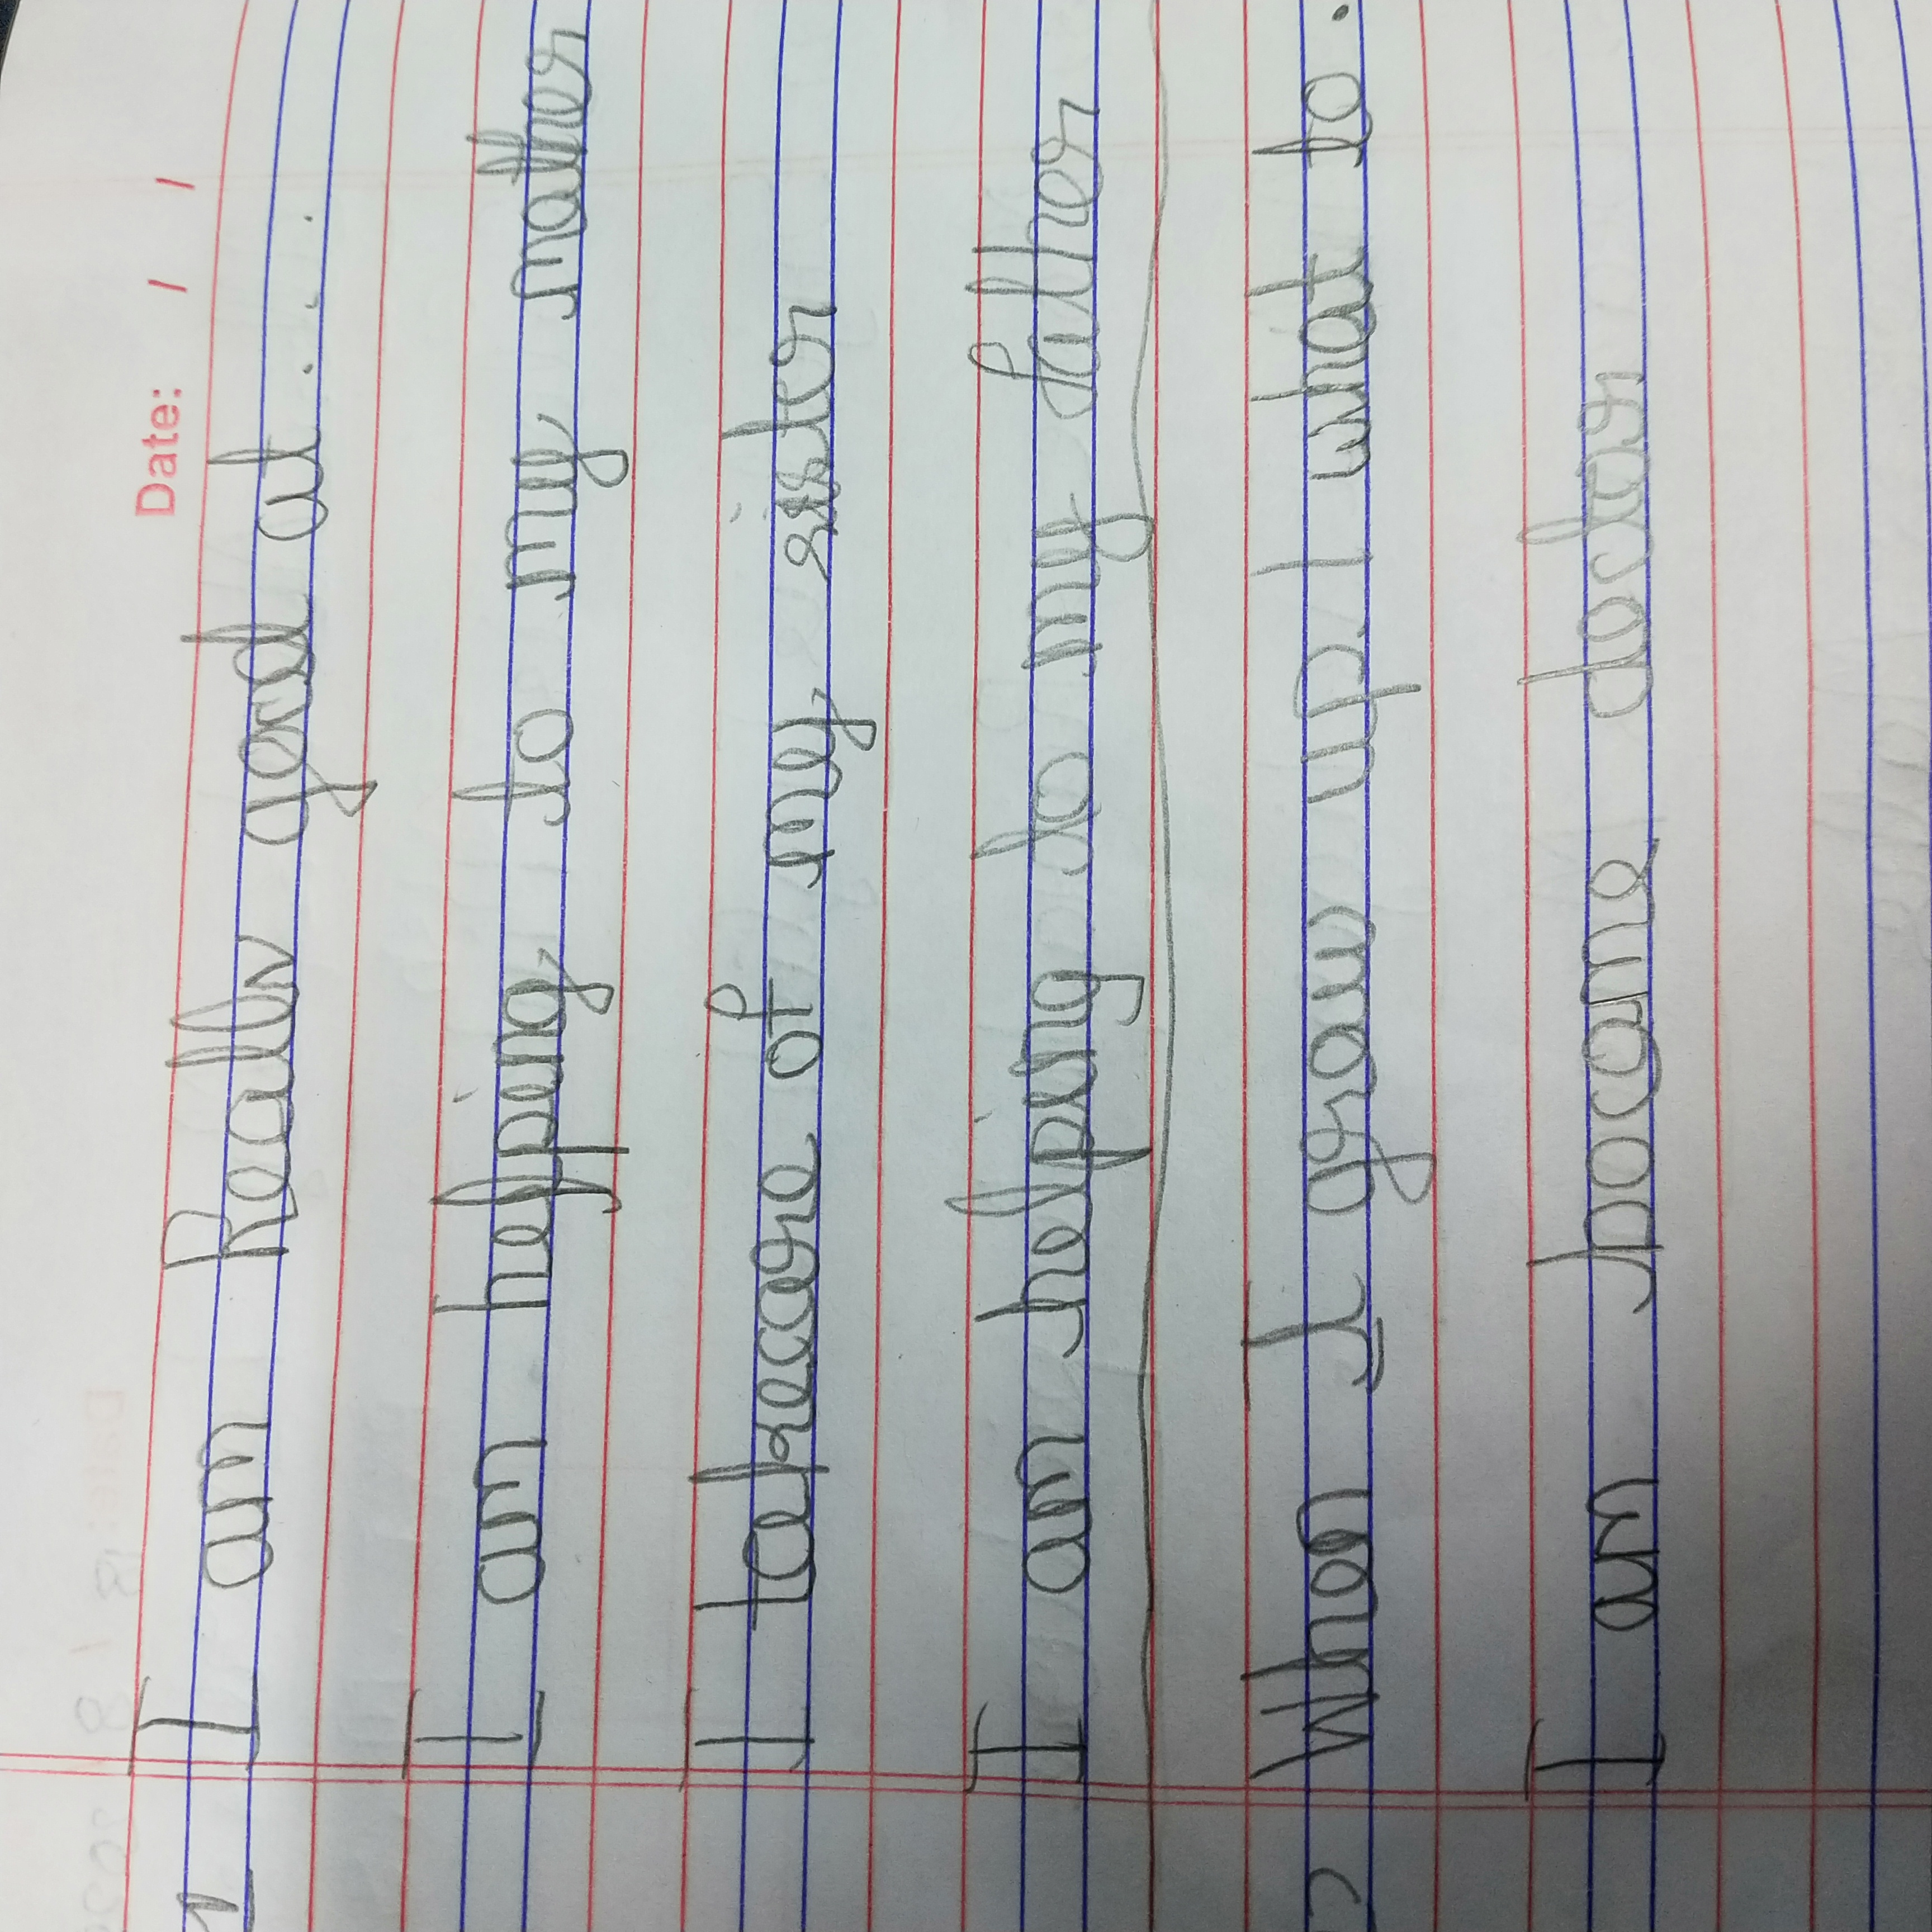 Date: / /
I am Really good at.....
I am helping to my mother
I takecare of my sister
I am helping to my father
When I grow up I what to.
I am become doctor